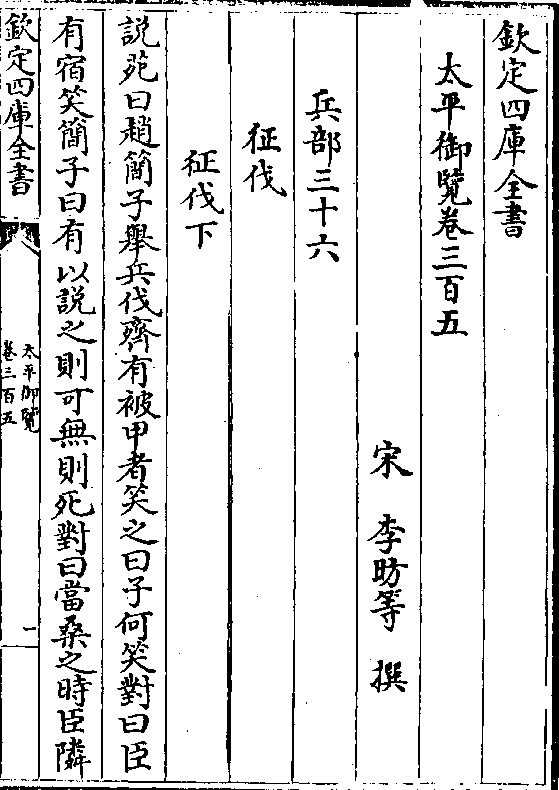 欽定四庫全書
太平御覽卷三百五
宋　李昉等　撰
兵部三十六
征伐
征伐下
說苑曰趙簡子舉兵伐齊有被甲者笑之曰子何笑對曰臣
有宿笑簡子曰有以說之則可無則死對曰當桑之時臣隣
欽定四庫全書
太平御覽
卷三百五
一